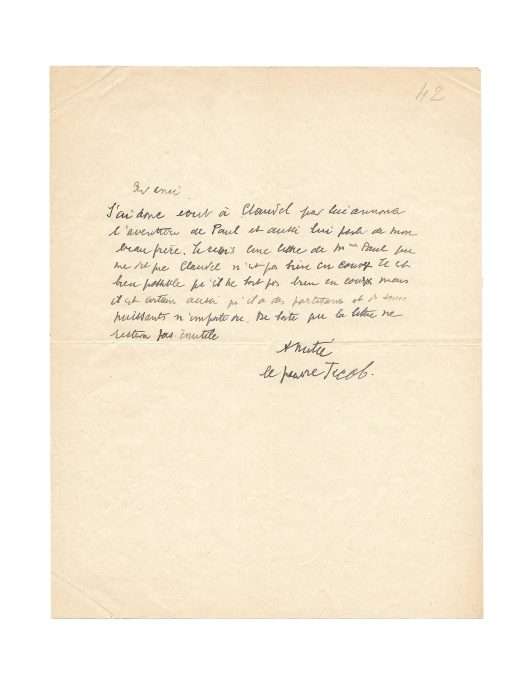 42
ami
J'ai donc écrit à Claudel pour lui annoncer
l'aventure de Paul et aussi lui parler de mon
beau frère. Je reçois une lettre de Mme Paul qui
me dit que Claudel n'est pas bien en cour. Il est
bien possible qu'il ne soit pas bien en cour mais
il est certain aussi qu'il a des partisans et
puissants n'importe où. De sorte que la lettre ne
restera pas inutile
Amitié
le pauvre Jacob.